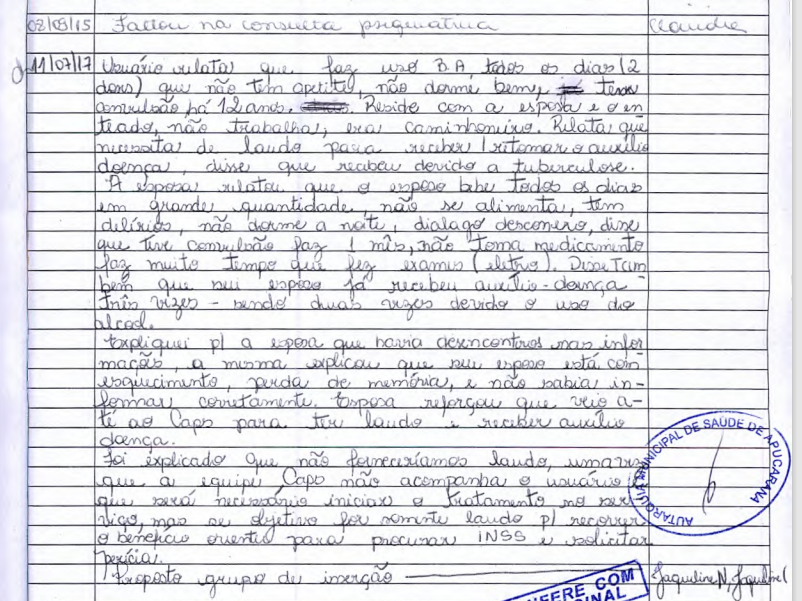 02/09/15 Faltou na consulta psiquiatrica Claudia
11/07/17 Usuário relata que faz uso B.A, todos os dias (2
dons) que não tem apetite, não dorme bem, tem
convulsão há 12 anos. Reside com a esposa e o en
teado, não trabalha, era caminhoneiro. Relata que
necessita de laudo para receber / retomar o auxílio
doença, disse que recebeu devido a tuberculose.
A esposa relatou que o esposo bebe todos os dias
em grande quantidade, não se alimenta, tem
delírios, não dorme a noite, dialago desconexo, disse
que teve convulsão faz 1 mês, não toma medicamento
faz muito tempo que fez exames (eletro). Disse Tam
bém que seu esposo já recebeu auxílio-doença
três vezes - sendo duas vezes devido o uso do
alcool.
Expliquei p/ a esposa que havia desencontros nas infor
mações, a mesma explicou que seu esposo está com
esquecimento, perda de memória, e não sabia in-
formar corretamente. Esposa reforçou que veio a-
té ao Caps para ter laudo e receber auxílio
doença.
Foi explicado que não forneceríamos laudo, uma vez
que a equipe Caps não acompanha o usuário
que será necessário iniciar o tratamento no ser
viço, mas se objetivo for somente laudo p/ recorrer
o benefício orientei para procurar INSS e solicitar
perícia.
Proposto grupo de inserção Jaqueline N, Jaqueline
AUTARQUIA MUNICIPAL DE SAÚDE DE APUCARANA
CONFERE COM
ORIGINAL